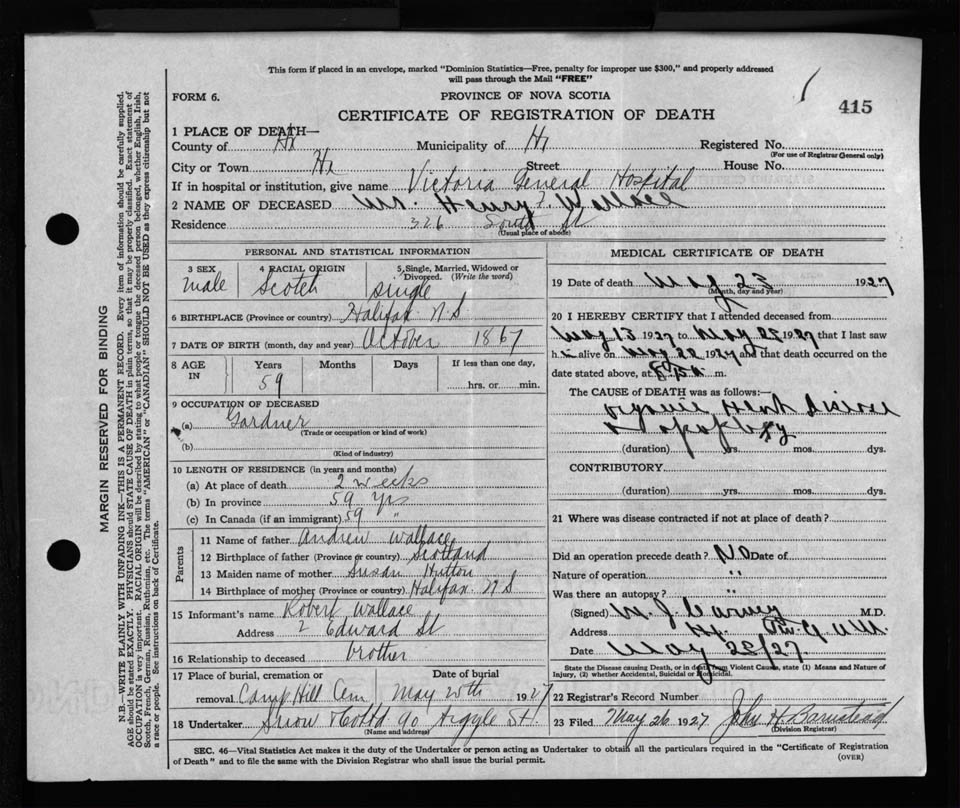 This form if placed in an envelope, marked "Dominion Statistics—Free, penalty for improper use $300," and properly addressed
will pass through the Mail "FREE"
FORM 6.
PROVINCE OF NOVA SCOTIA
415
CERTIFICATE OF REGISTRATION OF DEATH
1 PLACE OF DEATH—
County of Hx Municipality of Hx Registered No.
(For use of Registrar General only)
City or Town Hx Street House No.
If in hospital or institution, give name Victoria General Hospital
2 NAME OF DECEASED Mr. Henry Wallace
Residence 326 South St
(Usual place of abode)
PERSONAL AND STATISTICAL INFORMATION
3 SEX 4 RACIAL ORIGIN 5 Single, Married, Widowed or
Divorced. (Write the word)
male Scotch single
6 BIRTHPLACE (Province or country) Halifax N S
7 DATE OF BIRTH (month, day and year) October 1867
8 AGE IN Years Months Days If less than one day,
59 hrs. or min.
9 OCCUPATION OF DECEASED
(a) Gardner
(Trade or occupation or kind of work)
(b)
(Kind of industry)
10 LENGTH OF RESIDENCE (in years and months)
(a) At place of death 2 weeks
(b) In province 59 yrs
(c) In Canada (if an immigrant) 59 "
Parents
11 Name of father Andrew Wallace
12 Birthplace of father (Province or country) Scotland
13 Maiden name of mother Susan Hutton
14 Birthplace of mother (Province or country) Halifax N S
15 Informant's name Robert Wallace
Address 2 Edward St
16 Relationship to deceased brother
17 Place of burial, cremation or Date of burial
removal Camp Hill Cem May 25th 1927
18 Undertaker Snow & Co Ltd 90 Argyle St.
(Name and address)
MEDICAL CERTIFICATE OF DEATH
19 Date of death May 23 1927
(Month, day and year)
20 I HEREBY CERTIFY that I attended deceased from
May 13 1927 to May 1927 that I last saw
h alive on May 22 1927 and that death occurred on the
date stated above, at m.
The CAUSE of DEATH was as follows:
organic Heart Disease
& apoplexy
(duration) yrs. mos. dys.
CONTRIBUTORY
(duration) yrs. mos. dys.
21 Where was disease contracted if not at place of death?
Did an operation precede death? No Date of
Nature of operation "
Was there an autopsy? "
(Signed) M.D.
Address Hx.
Date May 27
State the Disease causing Death, or in death from Violent Cause, state (1) Means and Nature of
Injury, (2) whether Accidental, Suicidal or Homicidal.
22 Registrar's Record Number
23 Filed May 26 1927 John H.
(Division Registrar)
SEC. 46—Vital Statistics Act makes it the duty of the Undertaker or person acting as Undertaker to obtain all the particulars required in the "Certificate of Registration
of Death" and to file the same with the Division Registrar who shall issue the burial permit.
(OVER)
MARGIN RESERVED FOR BINDING
N.B.—WRITE PLAINLY WITH UNFADING INK—THIS IS A PERMANENT RECORD. Every item of information should be carefully supplied.
AGE should be stated EXACTLY. PHYSICIANS should STATE CAUSE OF DEATH in plain terms, so that it may be properly classified. Exact statement of
OCCUPATION is very important. RACIAL ORIGIN will be described by stating to what people or tongue the deceased person belonged, whether English, Irish,
Scotch, French, German, Russian, Ruthenian, etc. The terms "AMERICAN" or "CANADIAN" SHOULD NOT BE USED as they express citizenship but not
a race or people. See instructions on back of Certificate.